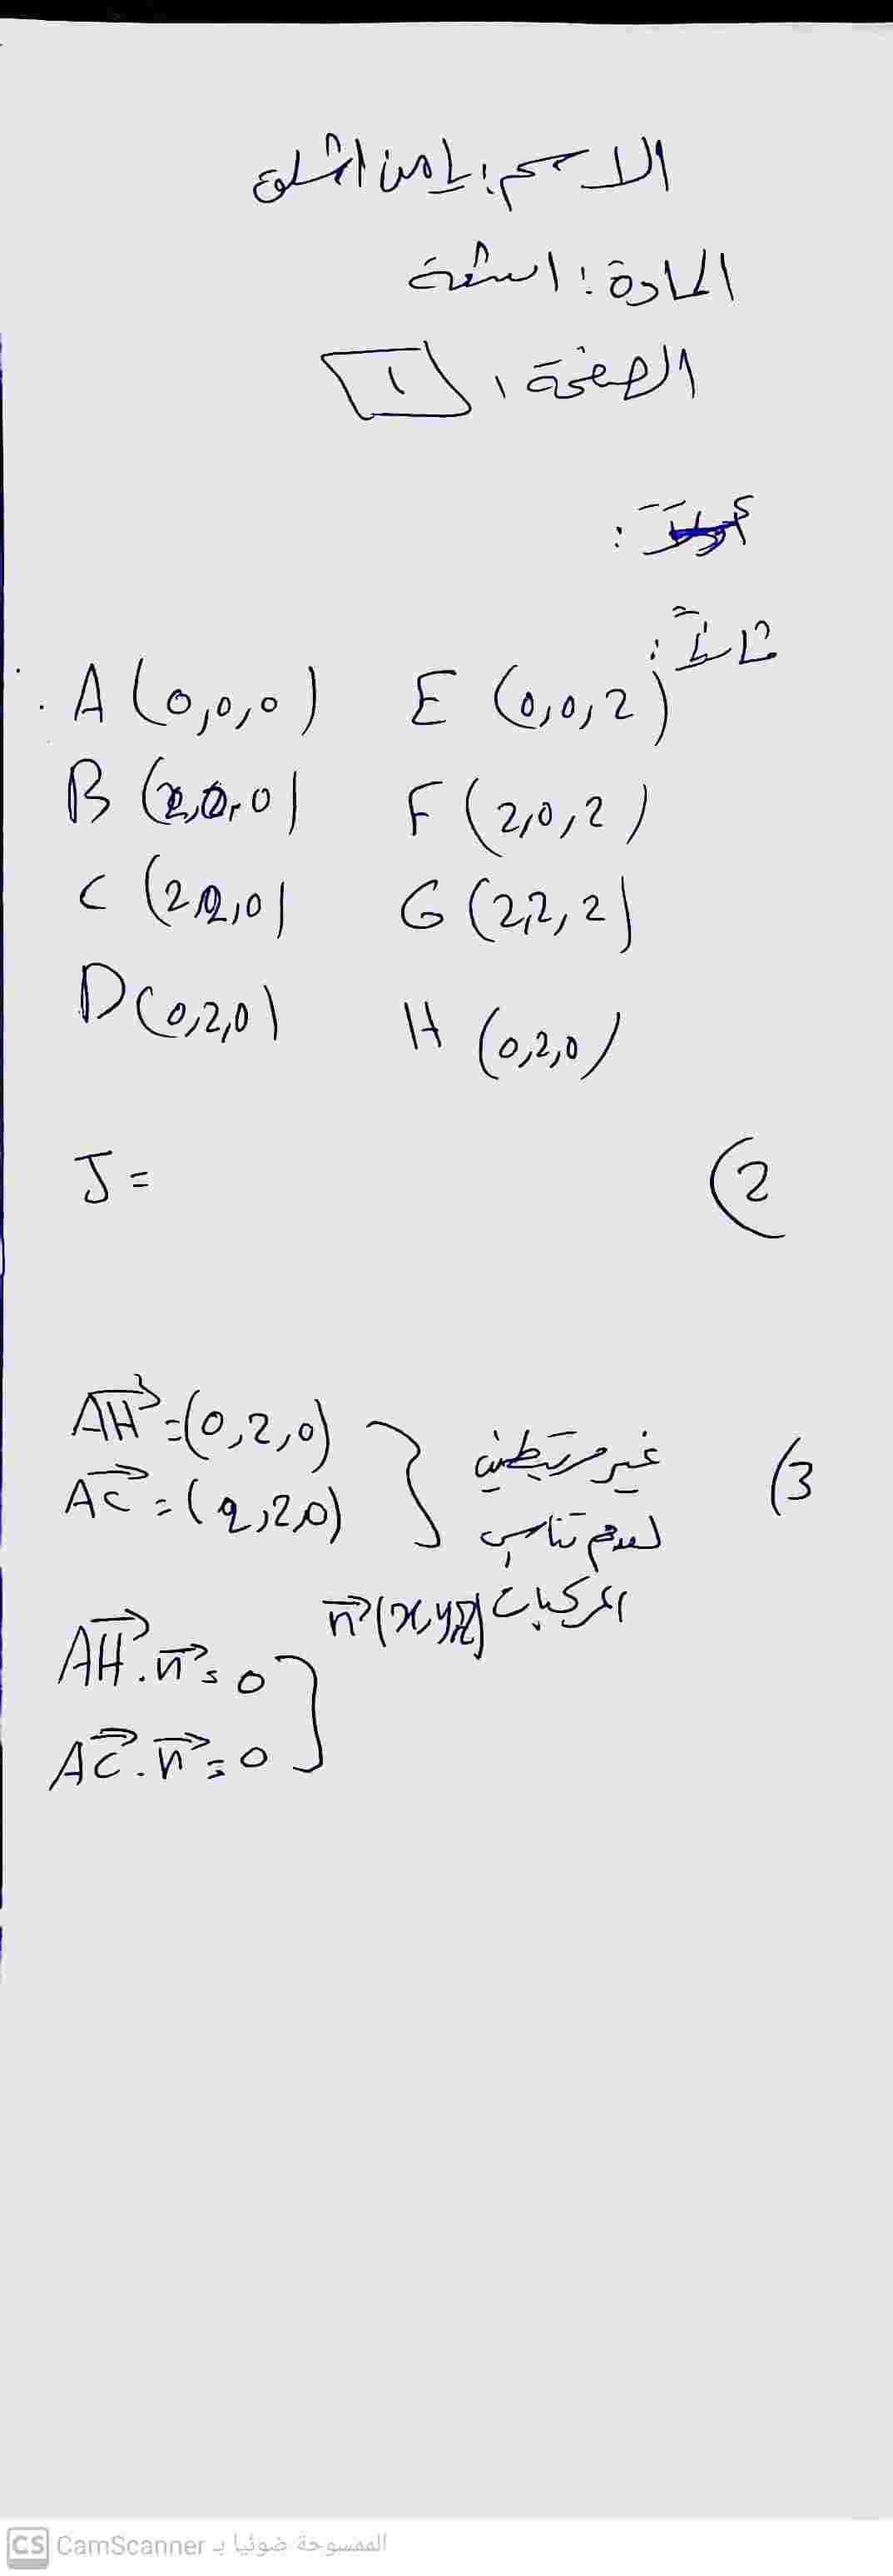 الاسم: يامن
المادة: اشعة
الصفحة: 1
أولاً:
ثانياً:
A (0,0,0) E (0,0,2)
B (2,0,0) F (2,0,2)
C (2,2,0) G (2,2,2)
D (0,2,0) H (0,2,0)
2)
J =
3)
AH = (0,2,0)
AC = (2,2,0)
غير مرتبطين
لعدم تناسب
المركبات n(x,y,z)
AH.n = 0
AC.n = 0
CS CamScanner الممسوحة ضوئيا بـ